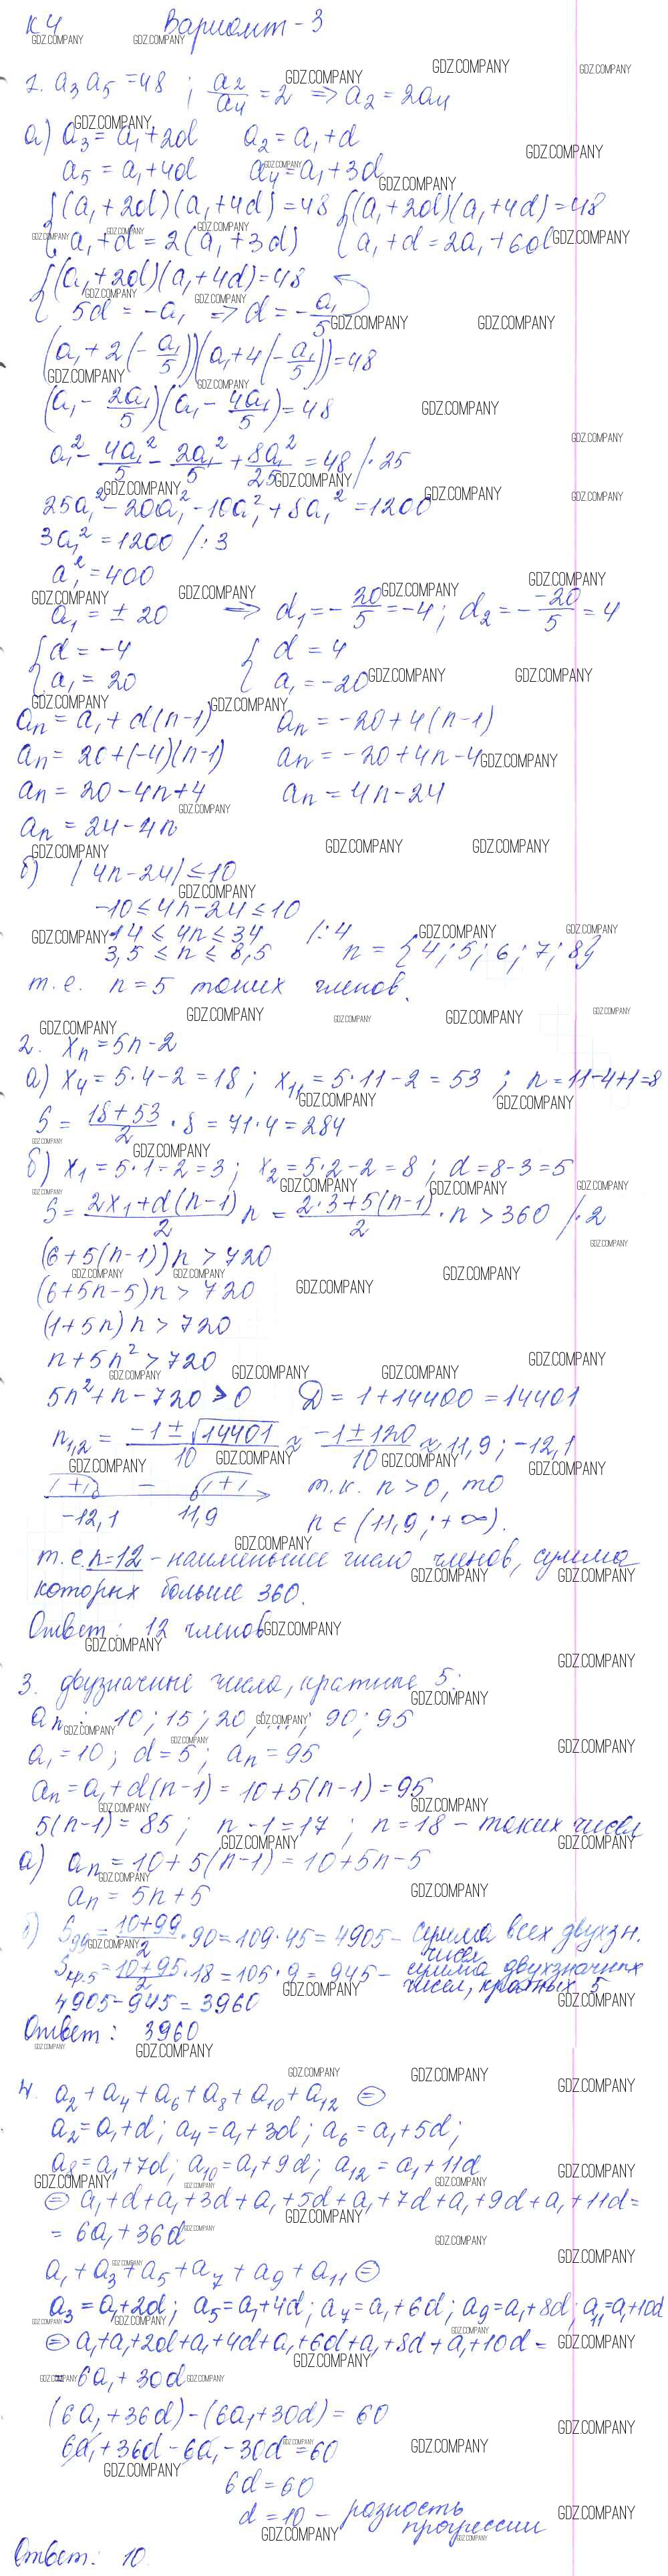 К4 Вариант-3
1. a₃a₅=48 ; a₂/a₄=2 ⇒ a₂=2a₄
а) a₃=a₁+2d a₂=a₁+d
a₅=a₁+4d a₄=a₁+3d
{(a₁+2d)(a₁+4d)=48 {(a₁+2d)(a₁+4d)=48
{a₁+d=2(a₁+3d) {a₁+d=2a₁+6d
{(a₁+2d)(a₁+4d)=48
{5d=-a₁ ⇒ d=-a₁/5
(a₁+2(-a₁/5))(a₁+4(-a₁/5))=48
(a₁-2a₁/5)(a₁-4a₁/5)=48
a₁²-4a₁²/5-2a₁²/5+8a₁²/25=48 /·25
25a₁²-20a₁²-10a₁²+8a₁²=1200
3a₁²=1200 /:3
a₁²=400
a₁=±20 ⇒ d₁=-20/5=-4; d₂=-(-20)/5=4
{d=-4 {d=4
{a₁=20 {a₁=-20
aₙ=a₁+d(n-1) aₙ=-20+4(n-1)
aₙ=20+(-4)(n-1) aₙ=-20+4n-4
aₙ=20-4n+4 aₙ=4n-24
aₙ=24-4n
б) |4n-24|≤10
-10≤4n-24≤10
14≤4n≤34 /:4
3,5≤n≤8,5 n={4;5;6;7;8}
т.е. n=5 таких членов.
2. xₙ=5n-2
а) x₄=5·4-2=18; x₁₁=5·11-2=53; n=11-4+1=8
S=(18+53)/2·8=71·4=284
б) x₁=5·1-2=3; x₂=5·2-2=8; d=8-3=5
S=(2x₁+d(n-1))/2 n=(2·3+5(n-1))/2·n>360 /·2
(6+5(n-1))n>720
(6+5n-5)n>720
(1+5n)n>720
n+5n²>720
5n²+n-720>0 D=1+14400=14401
n₁,₂=(-1±√14401)/10≈(-1±120)/10≈11,9; -12,1
+ - + т.к. n>0, то
-12,1 11,9 n∈(11,9;+∞).
т.е. n=12 - наименьшее число членов, сумма
которых больше 360.
Ответ: 12 членов
3. двузначные числа, кратные 5:
aₙ: 10; 15; 20; ...; 90; 95
a₁=10; d=5; aₙ=95
aₙ=a₁+d(n-1)=10+5(n-1)=95
5(n-1)=85; n-1=17; n=18 - таких чисел
а) aₙ=10+5(n-1)=10+5n-5
aₙ=5n+5
б) S₉₉=(10+99)/2·90=109·45=4905 - сумма всех двухзн. чисел
Sкр.5=(10+95)/2·18=105·9=945 - сумма двухзначных чисел, кратных 5
4905-945=3960
Ответ: 3960
4. a₂+a₄+a₆+a₈+a₁₀+a₁₂ ⊜
a₂=a₁+d; a₄=a₁+3d; a₆=a₁+5d;
a₈=a₁+7d; a₁₀=a₁+9d; a₁₂=a₁+11d
⊜ a₁+d+a₁+3d+a₁+5d+a₁+7d+a₁+9d+a₁+11d=
=6a₁+36d
a₁+a₃+a₅+a₇+a₉+a₁₁ ⊜
a₃=a₁+2d; a₅=a₁+4d; a₇=a₁+6d; a₉=a₁+8d; a₁₁=a₁+10d
⊜ a₁+a₁+2d+a₁+4d+a₁+6d+a₁+8d+a₁+10d=
=6a₁+30d
(6a₁+36d)-(6a₁+30d)=60
6a₁+36d-6a₁-30d=60
6d=60
d=10 - разность прогрессии
Ответ: 10